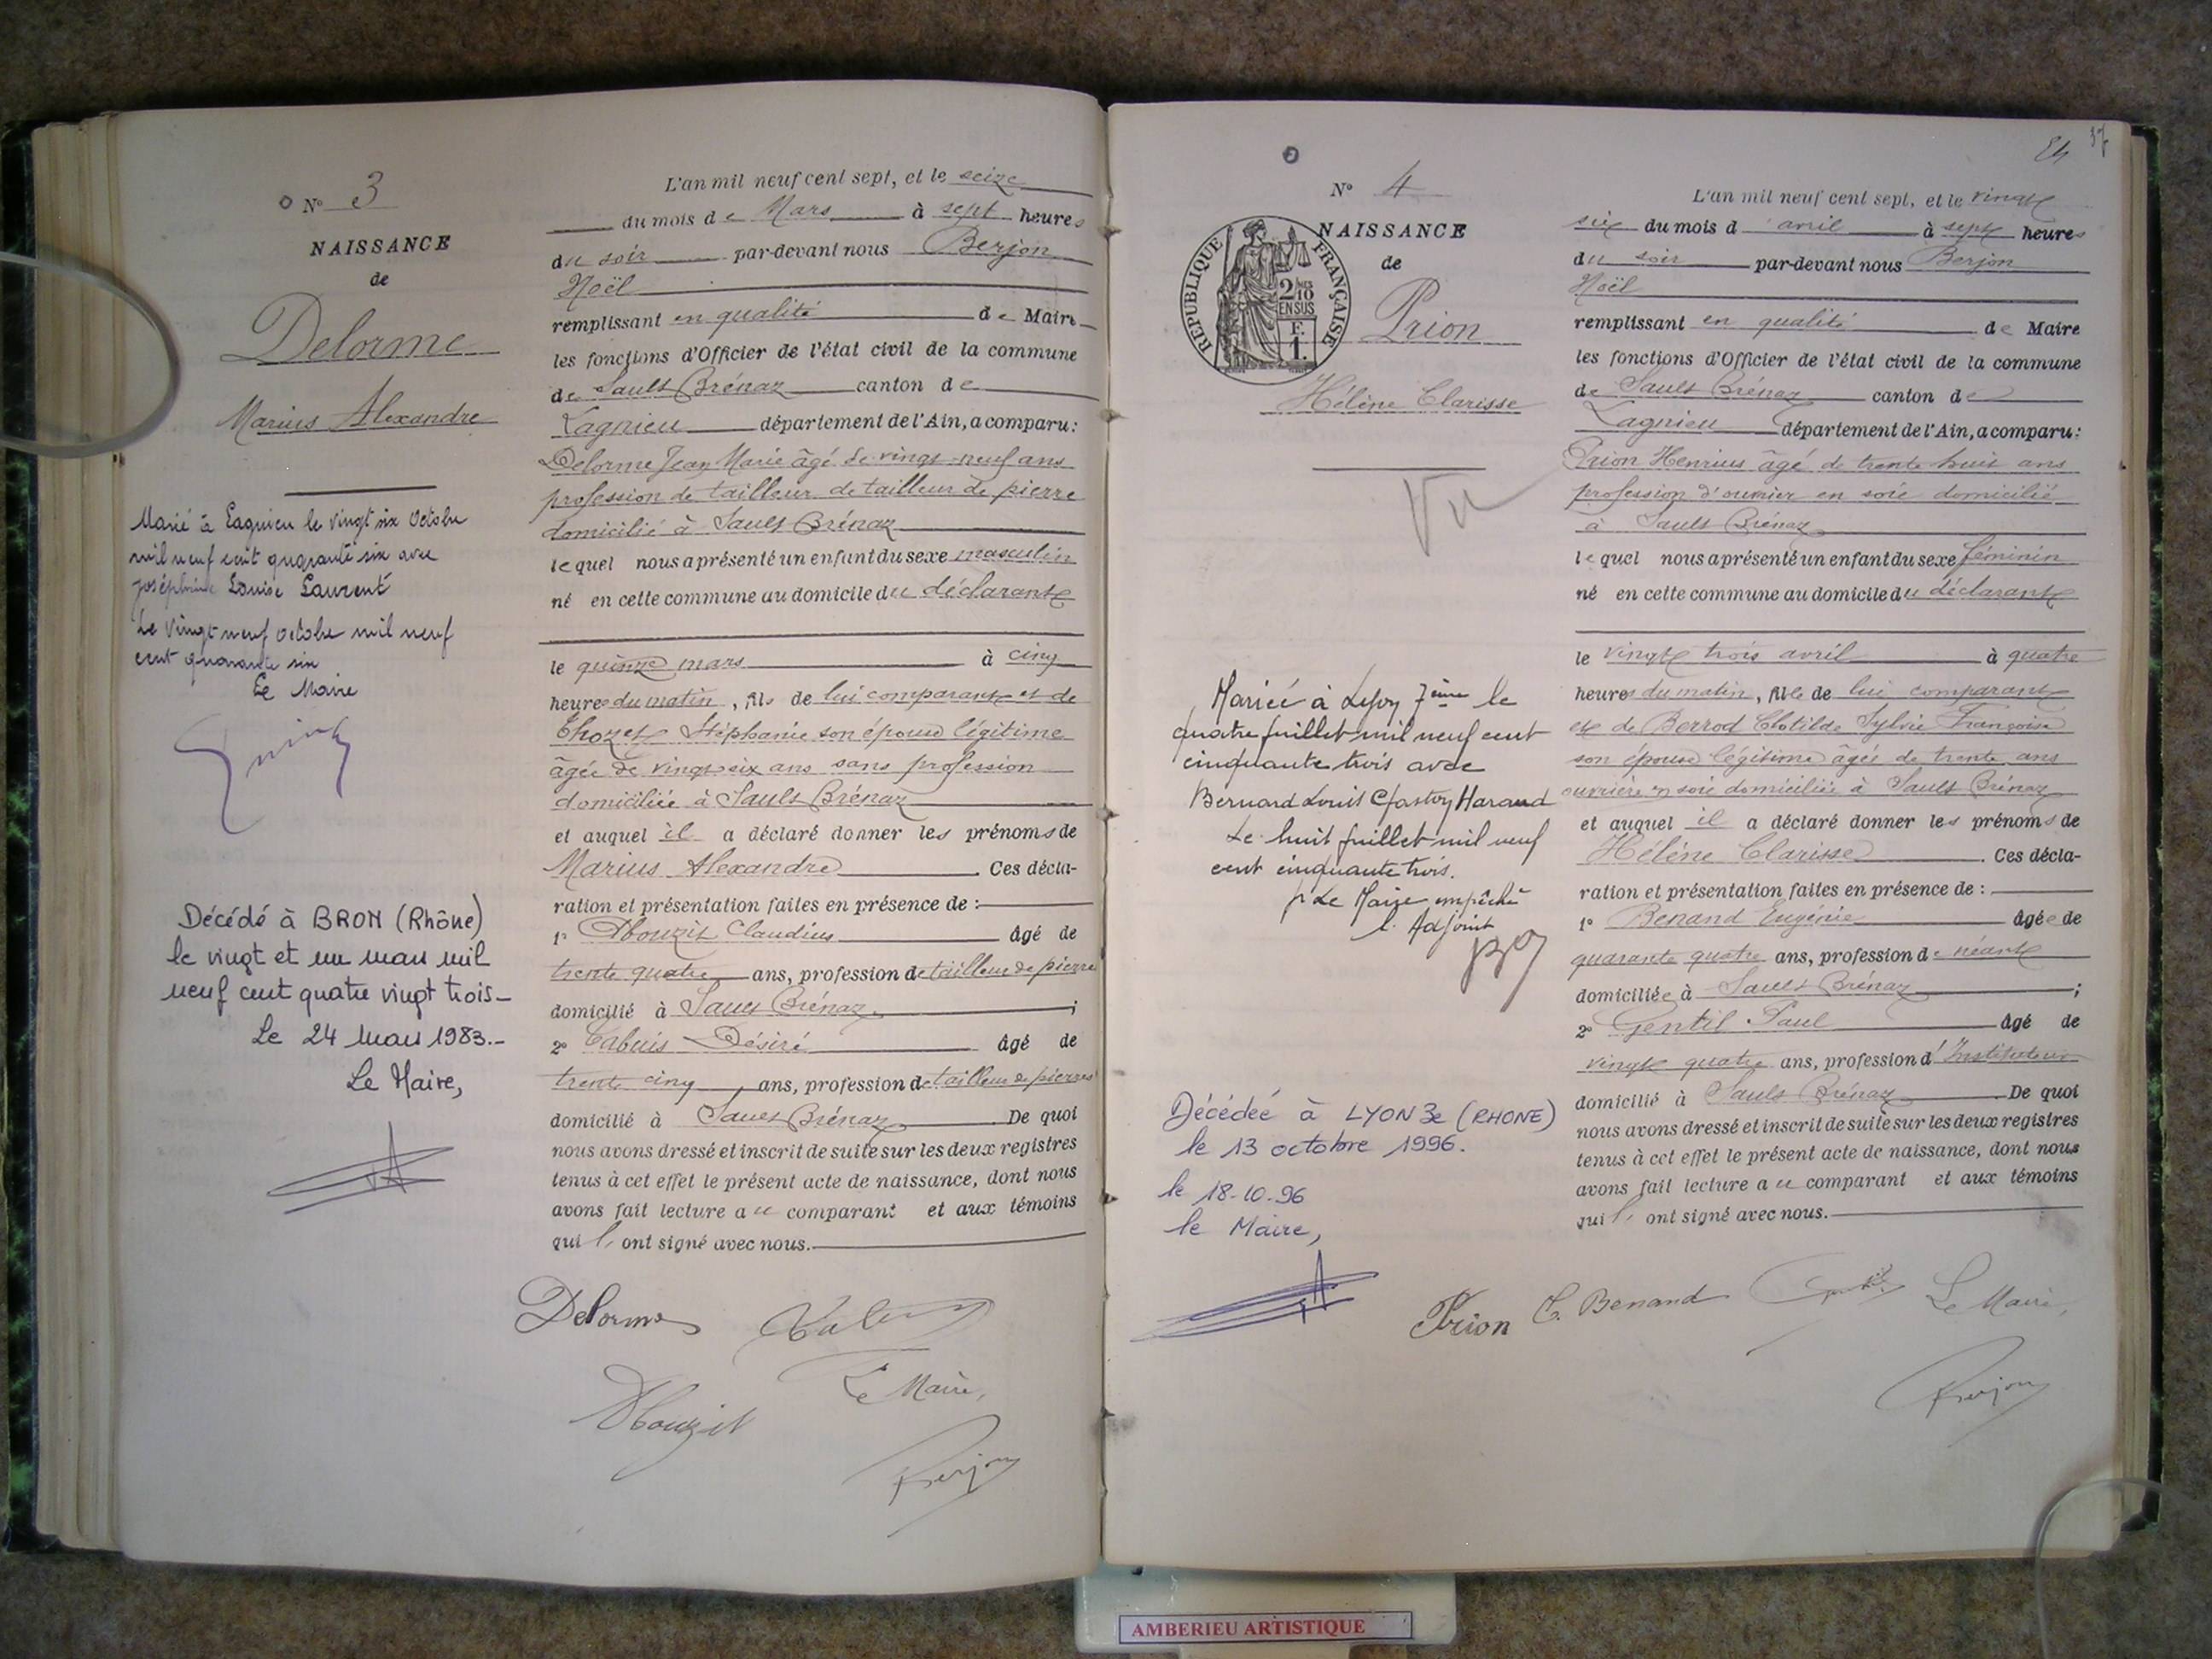 N° 3
NAISSANCE
de
Delorme
Marius Alexandre
Marié à Lagnieu le vingt six Octobre
mil neuf cent quarante six avec
Joséphine Louise Laurent
Le vingt neuf octobre mil neuf
cent quarante six
Le Maire
Décédé à BRON (Rhône)
le vingt et un mars mil
neuf cent quatre vingt trois -
Le 24 Mars 1983.-
Le Maire,
L'an mil neuf cent sept, et le seize
du mois de Mars à sept heures
du soir par-devant nous Berjon
Noël
remplissant en qualité de Maire
les fonctions d'Officier de l'état civil de la commune
de Sault Brénaz canton de
Lagnieu département de l'Ain, a comparu:
Delorme Jean Marie âgé de vingt-neuf ans
profession de tailleur de tailleur de pierre
domicilié à Sault Brénaz
lequel nous a présenté un enfant du sexe masculin
né en cette commune au domicile du déclarant
le quinze mars à cinq
heures du matin, fils de lui comparant et de
Thozet Stéphanie son épouse légitime
âgée de vingt-six ans sans profession
domiciliée à Sault Brénaz
et auquel il a déclaré donner les prénoms de
Marius Alexandre. Ces décla-
ration et présentation faites en présence de :
1° Abouzit Claudius âgé de
trente quatre ans, profession de tailleur de pierre
domicilié à Sault Brénaz ;
2° Cabuis Désiré âgé de
trente cinq ans, profession de tailleur de pierres
domicilié à Sault Brénaz De quoi
nous avons dressé et inscrit de suite sur les deux registres
tenus à cet effet le présent acte de naissance, dont nous
avons fait lecture au comparant et aux témoins
qui l' ont signé avec nous.
Delorme
Abouzit
Le Maire,
Berjon
84 37
N° 4
NAISSANCE
de
RÉPUBLIQUE FRANÇAISE
2/10 EN SUS
F. 1.
Prion
Hélène Clarisse
Vu
Mariée à Lyon 7ème le
quatre juillet mil neuf cent
cinquante trois avec
Bernard Louis Gaston Haraud
Le huit juillet mil neuf
cent cinquante trois.
p. Le Maire empêché
l. Adjoint
Décédée à LYON 3e (RHONE)
le 13 octobre 1996.
le 18-10-96
le Maire,
L'an mil neuf cent sept, et le vingt
six du mois d avril à sept heures
du soir par-devant nous Berjon
Noël
remplissant en qualité de Maire
les fonctions d'Officier de l'état civil de la commune
de Sault Brénaz canton de
Lagnieu département de l'Ain, a comparu:
Prion Henrius âgé de trente huit ans
profession d'ouvrier en soie domicilié
à Sault Brénaz
lequel nous a présenté un enfant du sexe féminin
né en cette commune au domicile du déclarant
le vingt trois avril à quatre
heures du matin, fille de lui comparant
et de Berrod Clotilde Sylvie Françoise
son épouse légitime âgée de trente ans
ouvrière en soie domiciliée à Sault Brénaz
et auquel il a déclaré donner les prénoms de
Hélène Clarisse. Ces décla-
ration et présentation faites en présence de :
1° Benand Eugénie âgée de
quarante quatre ans, profession de néant
domiciliée à Sault Brénaz ;
2° Gentil Paul âgé de
vingt quatre ans, profession d'Instituteur
domicilié à Sault Brénaz De quoi
nous avons dressé et inscrit de suite sur les deux registres
tenus à cet effet le présent acte de naissance, dont nous
avons fait lecture au comparant et aux témoins
qui l' ont signé avec nous.
Prion E. Benand Le Maire,
Berjon
AMBERIEU ARTISTIQUE